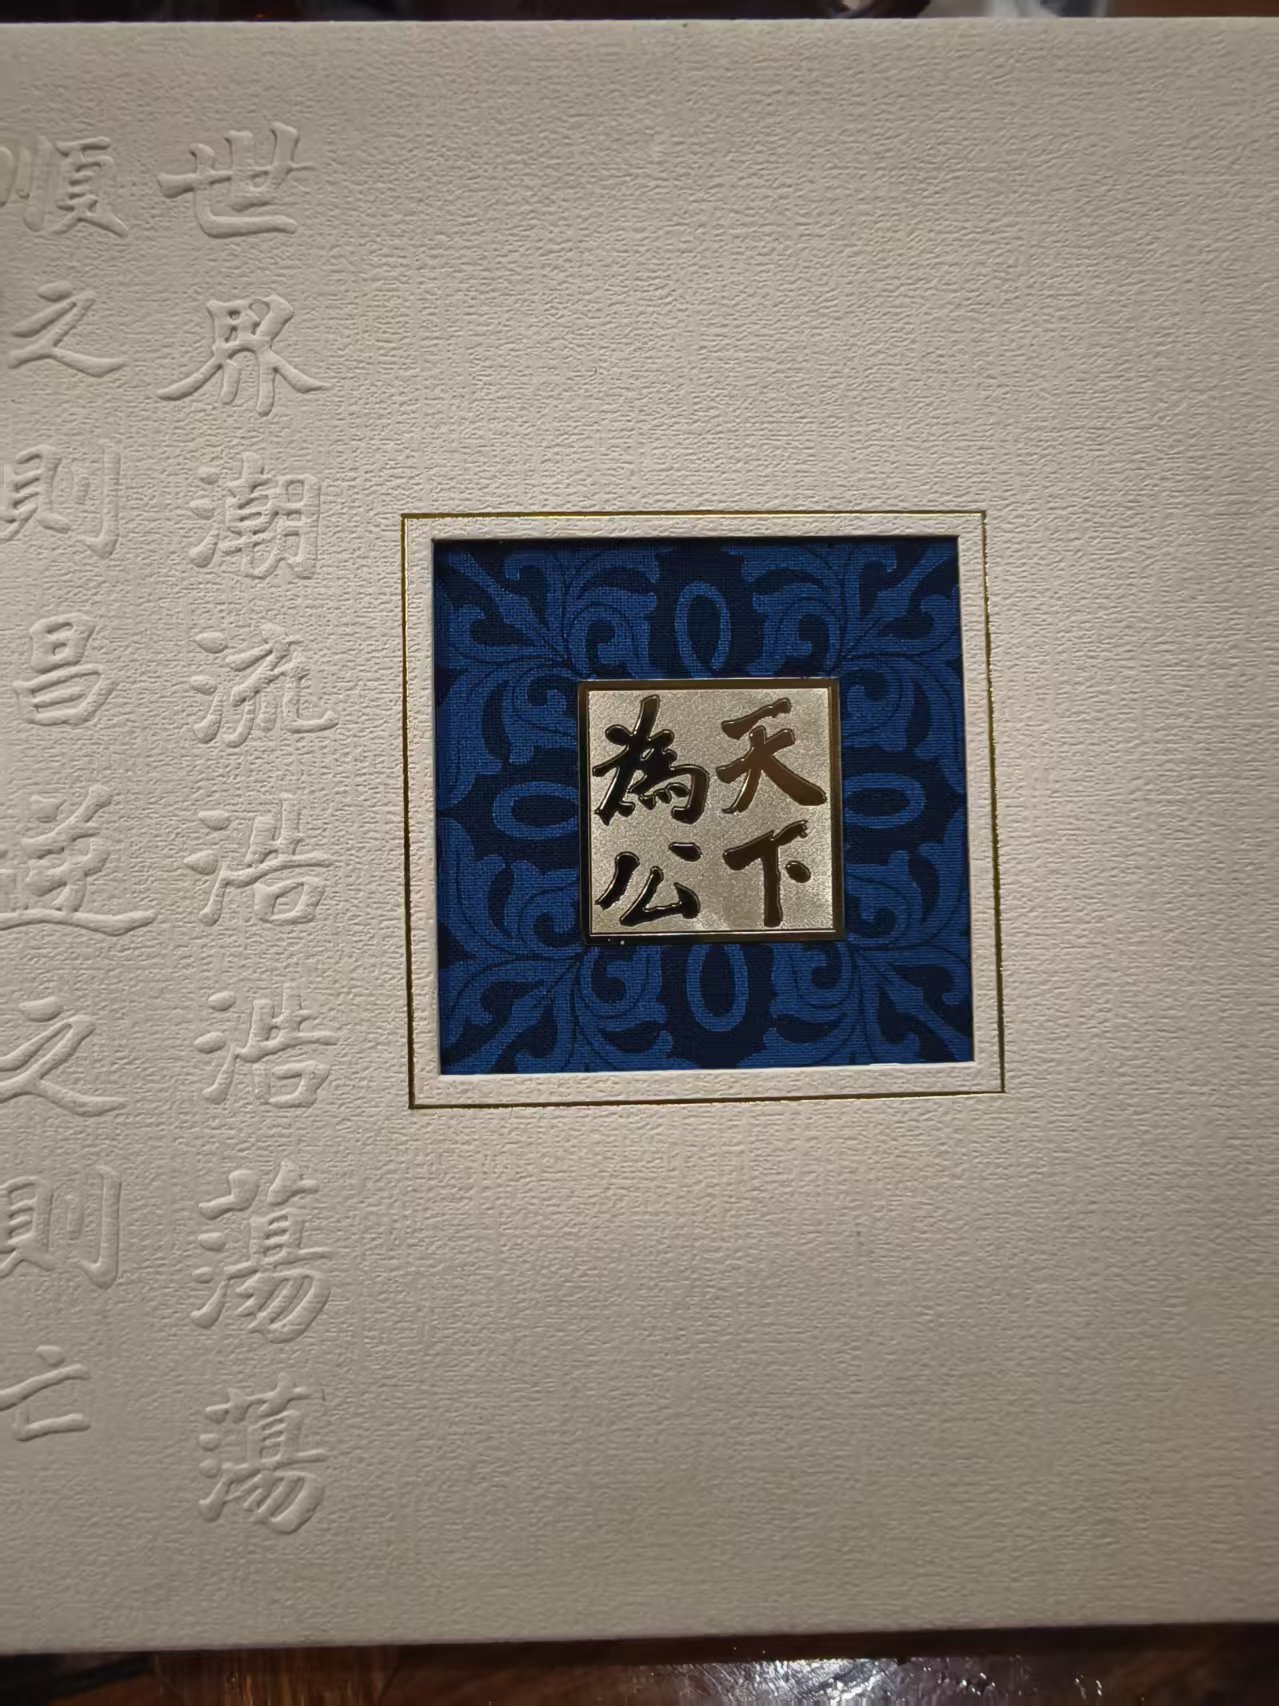 世界潮流浩浩蕩蕩
順之則昌逆之則亡
天下
為公